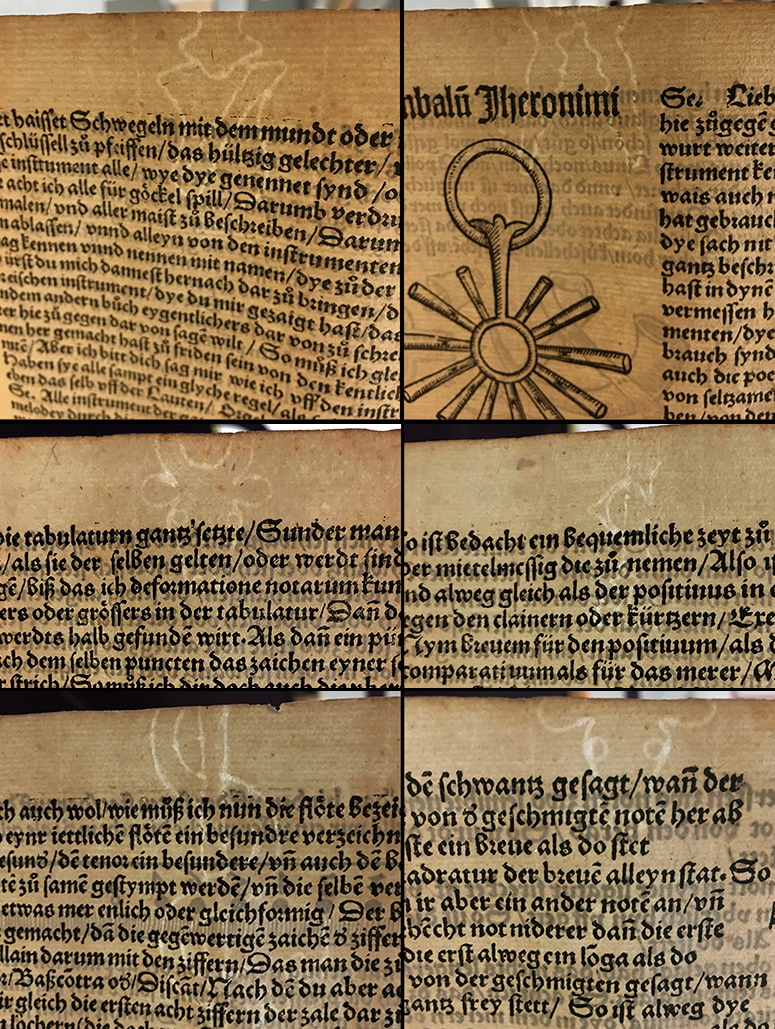 haisset Schwegeln mit dem mundt oder
schlüssell zů pfeiffen/das hültzig gelechter/
instrument alle/wye dye genennet synd/
acht ich alle für göckel spill/Darumb verdru
malen/vnd aller maist zů beschreiben/Darum
nablassen/vnnd alleyn von den instrumenten
kennen vnnd nennen mit namen/dye zů der
du mich dannest hernach dar zů bringen/d
instrument/dye du mir gezaigt hast/das
andern bůch eygentlichers dar von zů schre
hie zů gegen dar von sagē wilt/So můß ich gle
her gemacht hast zů friden sein von den kentlich
Aber ich bitt dich sag mir wie ich vff den instr
haben sye alle sampt ein glyche regel/als
eben das selb vff der Lauten/
Se. Alle instrument der
melodey durch
nbalū Jheronimi
Se. Lieb
hie zůgegē
wurt weiter
strument kei
wais auch n
hat gebrauch
dye sach nit
gantz beschr
hast in dynē
vermessen h
menten/dye
brauch synd
auch die poe
von seltzamē
ben/von den
die tabulaturn gantz setzte/Sunder man
/als sie der selben gelten/oder werdt sind
gē/biß das ich deformatione notarum kun
ers oder grössers in der tabulatur/Dañ da
werdts halb gefundē wirt. Als dañ ein pū
ch dem selben puncten das zaichen eyner
strich/So můß ich dir doch auch die
so ist bedacht ein bequemliche zeyt zů
der mittelmessig die zů nemen/Also
nd alweg gleich als der positiuus in
egen den clainern oder kürtzern/Exe
Tym breuem für den positiuum/als d
comparatiuum als für das merer/
ch auch wol/wie můß ich nun die flöte bezei
eynr iettlichē flötē ein besundre verzeichn
esund/dē tenor ein besundere/vñ auch dē b
tē zů samē gestympt werdē/vñ die selbē ver
etwas mer enlich oder gleichformig/Der B
gemacht/dā die gegēwertigē zaichē ð ziffer
llain darum mit den ziffern/Das man die zi
/Baßcōtra oð/Discāt/Nach dē du aber
ir gleich die ersten acht ziffern der zale dar
löchern/die dach
dē schwantz gesagt/wañ der
von ð geschmigtē notē her ab
ste ein breue als do stet
adratur der breuē alleyn stat. So
ir aber ein ander notē an/vñ
hēcht not niderer dañ die erste
die erst alweg ein lōga als do
von der geschmigten gesagt/wann
gantz frey stett/ So ist alweg dye